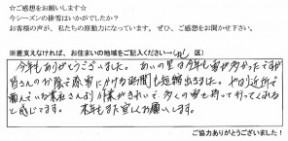 ☆ご感想をお願いします☆
今シーズンの排雪はいかがでしたか？
お客様の声が、私たちの原動力になっています。ぜひ、ご感想をお聞かせ下さい。
※差支えなければ、お住まいの地域をご記入ください→( 区)
今年もありがとうございました。あいの里は今年も雪が多かったですが
皆さんのお陰で除雪にかける時間も短縮出来ました。やはり近所で
頼んでいる業者さんより作業がきれいで、多くの雪を持って行ってくれると
感じてます。来年もまた宜しくお願いします。
ご協力ありがとうございました！